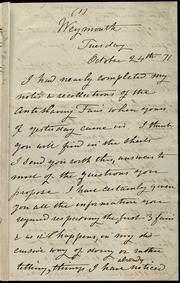 (1)
Weymouth
Tuesday
October 24th 71
I had nearly completed my
notes & recollections of the
Anti Slavery Fair when yours
of yesterday came in. I think
you will find in the sheets
I send you with this, answers to
most of the questions you
propose. I have certainly given
you all the information you
required respecting the first Fair
& as it happens, in my
cursive way of doing or rather
telling, things I have noticed
already